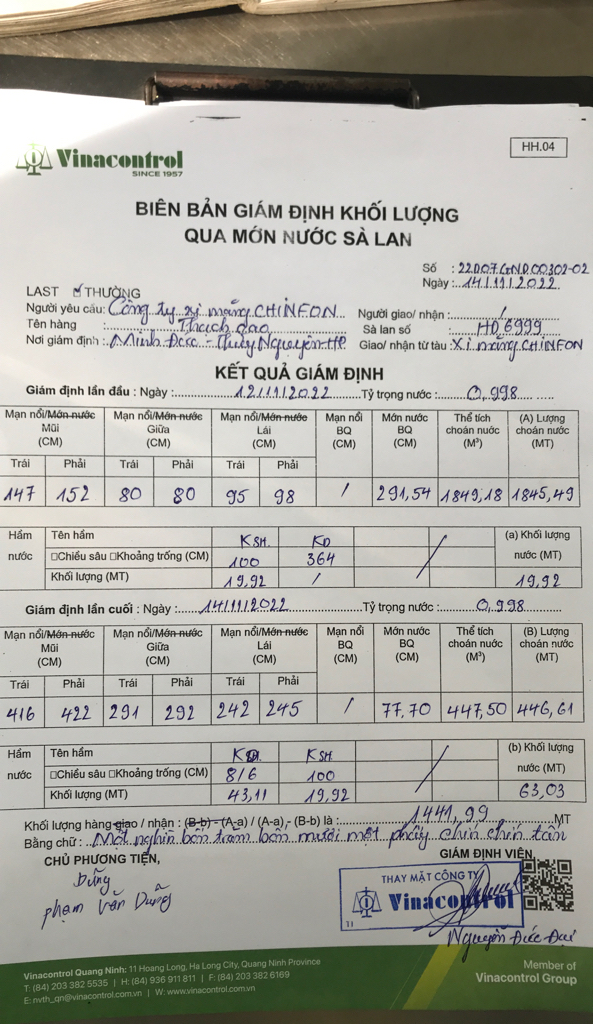 Vinacontrol
SINCE 1957
HH.04
BIÊN BẢN GIÁM ĐỊNH KHỐI LƯỢNG
QUA MỚN NƯỚC SÀ LAN
Số : 22D07GND00302-02
Ngày : 14/11/2022
LAST ☑ THƯỜNG
Người yêu cầu: Công ty xi măng CHINFON Người giao/ nhận : /
Tên hàng : Thạch cao Sà lan số : HD 6999
Nơi giám định : Minh Đức - Thủy Nguyên - HP Giao/ nhận từ tàu : Xi măng CHINFON
KẾT QUẢ GIÁM ĐỊNH
Giám định lần đầu : Ngày : 12/11/2022 Tỷ trọng nước : 0,998
Mạn nổi/Mớn nước Mũi (CM) Mạn nổi/Mớn nước Giữa (CM) Mạn nổi/Mớn nước Lái (CM) Mạn nổi BQ (CM) Mớn nước BQ (CM) Thể tích choán nước (M³) (A) Lượng choán nước (MT)
Trái Phải Trái Phải Trái Phải
147 152 80 80 95 98 / 291,54 1849,18 1845,49
Hầm nước Tên hầm KSH. KD (a) Khối lượng nước (MT)
□Chiều sâu □Khoảng trống (CM) 100 364
Khối lượng (MT) 19,92 / 19,92
Giám định lần cuối : Ngày : 14/11/2022 Tỷ trọng nước : 0,998
Mạn nổi/Mớn nước Mũi (CM) Mạn nổi/Mớn nước Giữa (CM) Mạn nổi/Mớn nước Lái (CM) Mạn nổi BQ (CM) Mớn nước BQ (CM) Thể tích choán nước (M³) (B) Lượng choán nước (MT)
Trái Phải Trái Phải Trái Phải
416 422 291 292 242 245 / 77,70 447,50 446,61
Hầm nước Tên hầm KSH. (b) Khối lượng nước (MT)
□Chiều sâu □Khoảng trống (CM) 100
Khối lượng (MT) 43,11 19,92 63,03
Khối lượng hàng giao / nhận : (B-b) - (A-a) / (A-a) - (B-b) là : 1441,99 MT
Bằng chữ : Một nghìn bốn trăm bốn mươi một phẩy chín chín tấn
CHỦ PHƯƠNG TIỆN, GIÁM ĐỊNH VIÊN
Dũng
phạm văn Dũng
THAY MẶT CÔNG TY
Vinacontrol
11
Nguyễn Đức Đại
Vinacontrol Quang Ninh: 11 Hoang Long, Ha Long City, Quang Ninh Province
T: (84) 203 382 5535 | H: (84) 936 911 811 | F: (84) 203 382 6169
E: nvth_qn@vinacontrol.com.vn | W: www.vinacontrol.com.vn
Member of
Vinacontrol Group